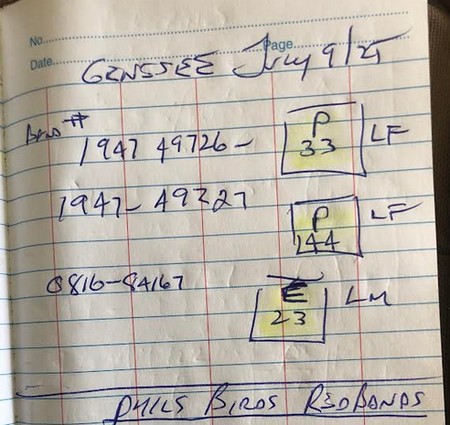 No.
Page.
Date. GENSSEE July 9/25
Band #
1947 49726- P 33 LF
1947- 49727 P 144 LF
0816-84167 E 23 LM
PHILS BIRDS RED BANDS